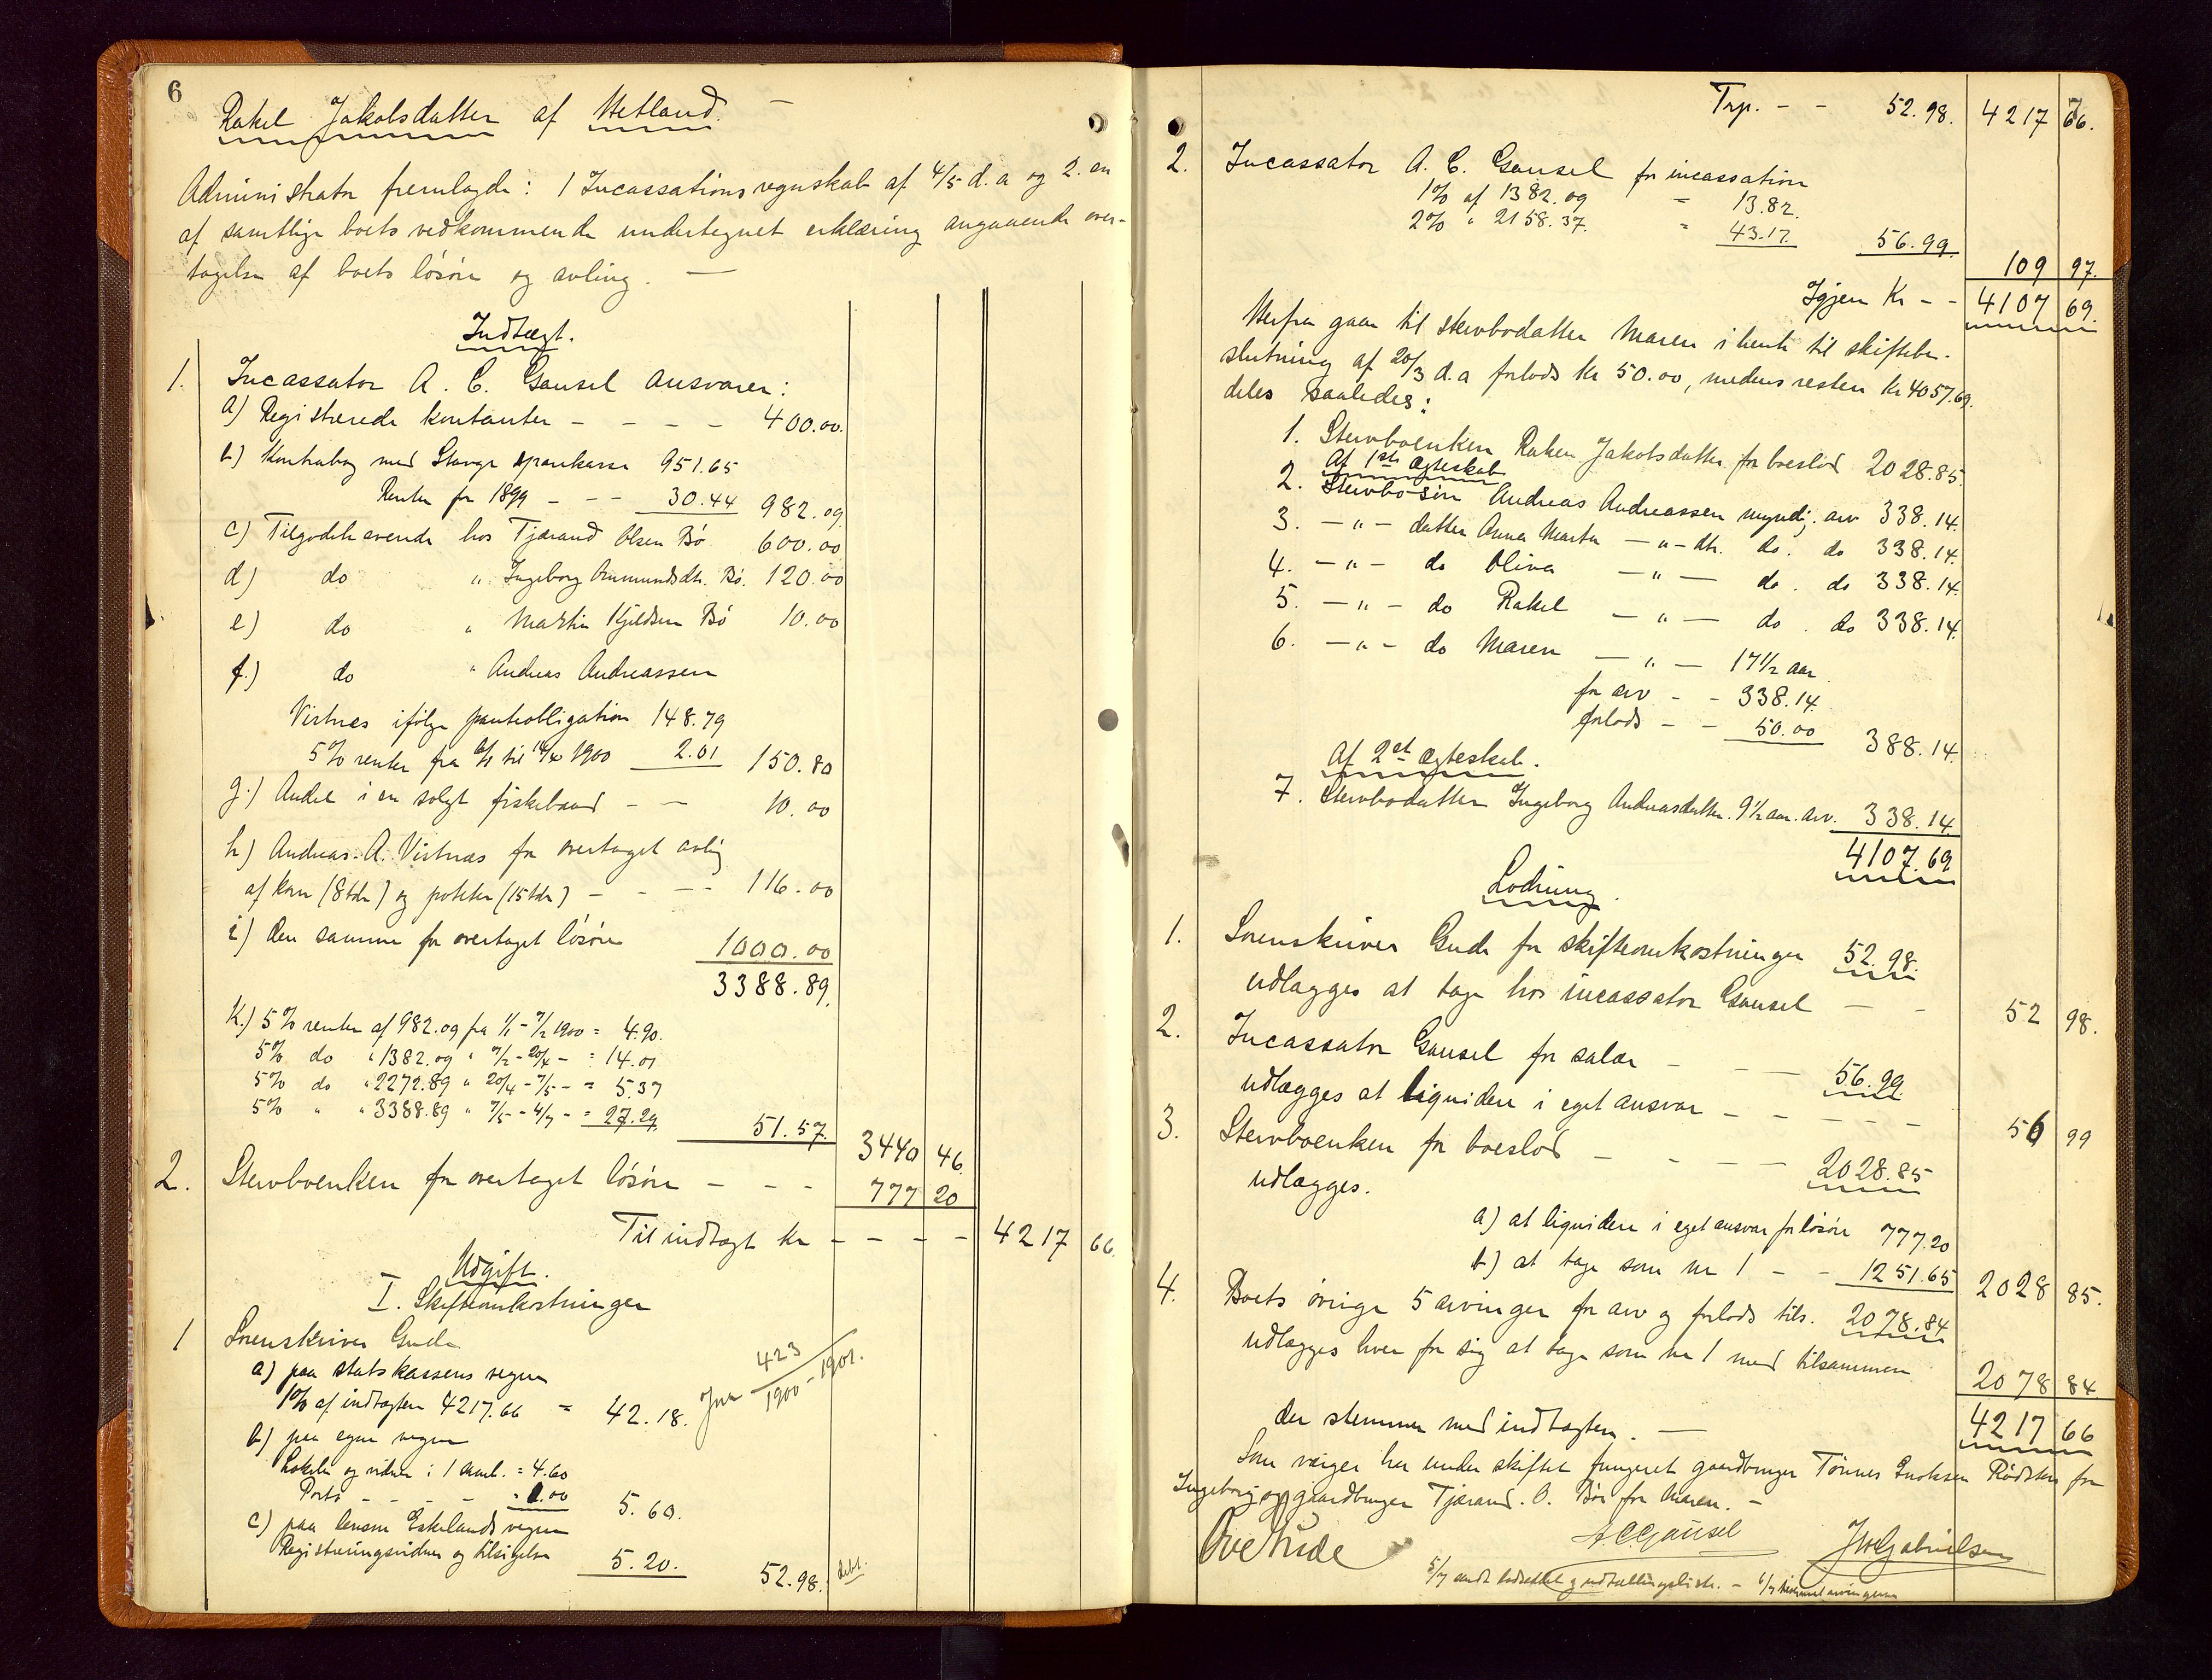 6
Rakel Jakobsdatter af Hetland. —
Administrator fremlagde: 1 Incassationsregnskab af 4/5 d.a og 2. en
af samtlige boets vedkommende undertegnet erklæring angaaende over-
tagelse af boets løsøre og avling. —
Indtægt.
1. Incassator A. C. Gausel ansvarer:
a) Registrerede kontanter - - - - 400.00.
b) Kontrabog med Stavgr sparekasse 951.65
Renter for 1899 - - - 30.44 982.09
c) Tilgodehavende hos Tjærand Olsen Bø 600.00
d) do " Ingeborg Ommundsdtr. Bø. 120.00
e) do " Martin Kjeldsen Bø 10.00
f.) do " Andreas Andreassen
Virtnes ifølge panteobligation 148.79
5% renter fra til 1900 2.01 150.80
g.) Andel i en solgt fiskebaad - - 10.00
h) Andreas. A. Virtnæs for overtaget avling
af korn (8 tdr) og poteter (15 tdr) - - - - 116.00
i) den samme for overtaget løsøre 1000.00
3388.89.
K.) 5% renter af 982.09 fra 1/1 - 7/2 1900 = 4.90.
5% do " 1382.09 " 7/2 - 20/4 - = 14.01
5% do " 2272.89 " 20/4 - 7/5 - = 5.37
5% " " 3388.89 " 7/5 - 4/7 - = 27.29 51.57 3440 46.
2. Stervboenken for overtaget løsøre - - - 777 20
Til indtægt kr - - - - 4217 66.
Udgift.
I. Skifteomkostninger
1 Sorenskriver Gude
a) paa statskassens vegne
1% af indtægten 4217.66 = 42.18.
Jnr 423/1900-1901.
b) paa egne vegne
Lokale og vidner i 1 saml. = 4.60
Porto - - - - " 1.00 5.60.
c) paa lensm Eskelands vegne
Registreringsvidner og tilsigelse 5.20. 52.98.
debt.
Trp. - - 52.98. 4217 66.
2. Incassator A. C. Gausel for incassation
1% af 1382.09 = 13.82.
2% " 2158.37. = 43.17. 56.99. 109 97.
Igjen Kr - - 4107 69.
Herfra gaar til stervbodatter Maren i henh. til skiftebe-
slutning af 20/3 d.a forlods kr 50.00, medens resten kr 4057.69.
deles saaledes:
1. Stervboenken Raken Jakobsdatter for boeslod 2028.85.
Af 1ste ægteskab
2. Stervbosøn Andreas Andreassen myndig. arv 338.14.
3. — " — datter Anna Marta — " — dtr. do. do 338.14.
4. — " — do Oliva — " — do. do 338.14.
5. — " — do Rakel — " — do. do 338.14.
6. — " — do Maren — " — 17 1/2 aar
for arv - - 338.14.
forlods - - 50.00 388.14.
Af 2et ægteskab.
7. Stervbodatter Ingeborg Andreasdatter. 9 1/2 aar. arv. 338.14
4107.69
Lodning.
1. Sorenskriver Gude for skifteomkostninger 52.98.
udlægges at tage hos incassator Gausel — - 52 98.
2. Incassator Gausel for salær - - — 56.99
udlægges at liquidere i eget ansvar - - - - - 56 99
3. Stervboenken for boeslod - - - - — 2028.85
udlægges.
a) at liquidere i eget ansvar for løsøre 777.20
b) at tage som nr 1 - - 1251.65 2028 85.
4. Boets øvrige 5 arvinger for arv og forlods tils. 2078.84
udlægges hver for sig at tage som nr 1 med tilsammen 2078 84
der stemmer med indtægten. — 4217 66
Som værger har under skiftet fungeret gaardbruger Tønnes Rødsten for
Ingeborg og gaardbruger Tjærand. O. Bø for Maren. -
Ove Gude A. C. Gausel Gabrielsen
5/7 sendt lodseddel og udtællingsliste. — 6/7